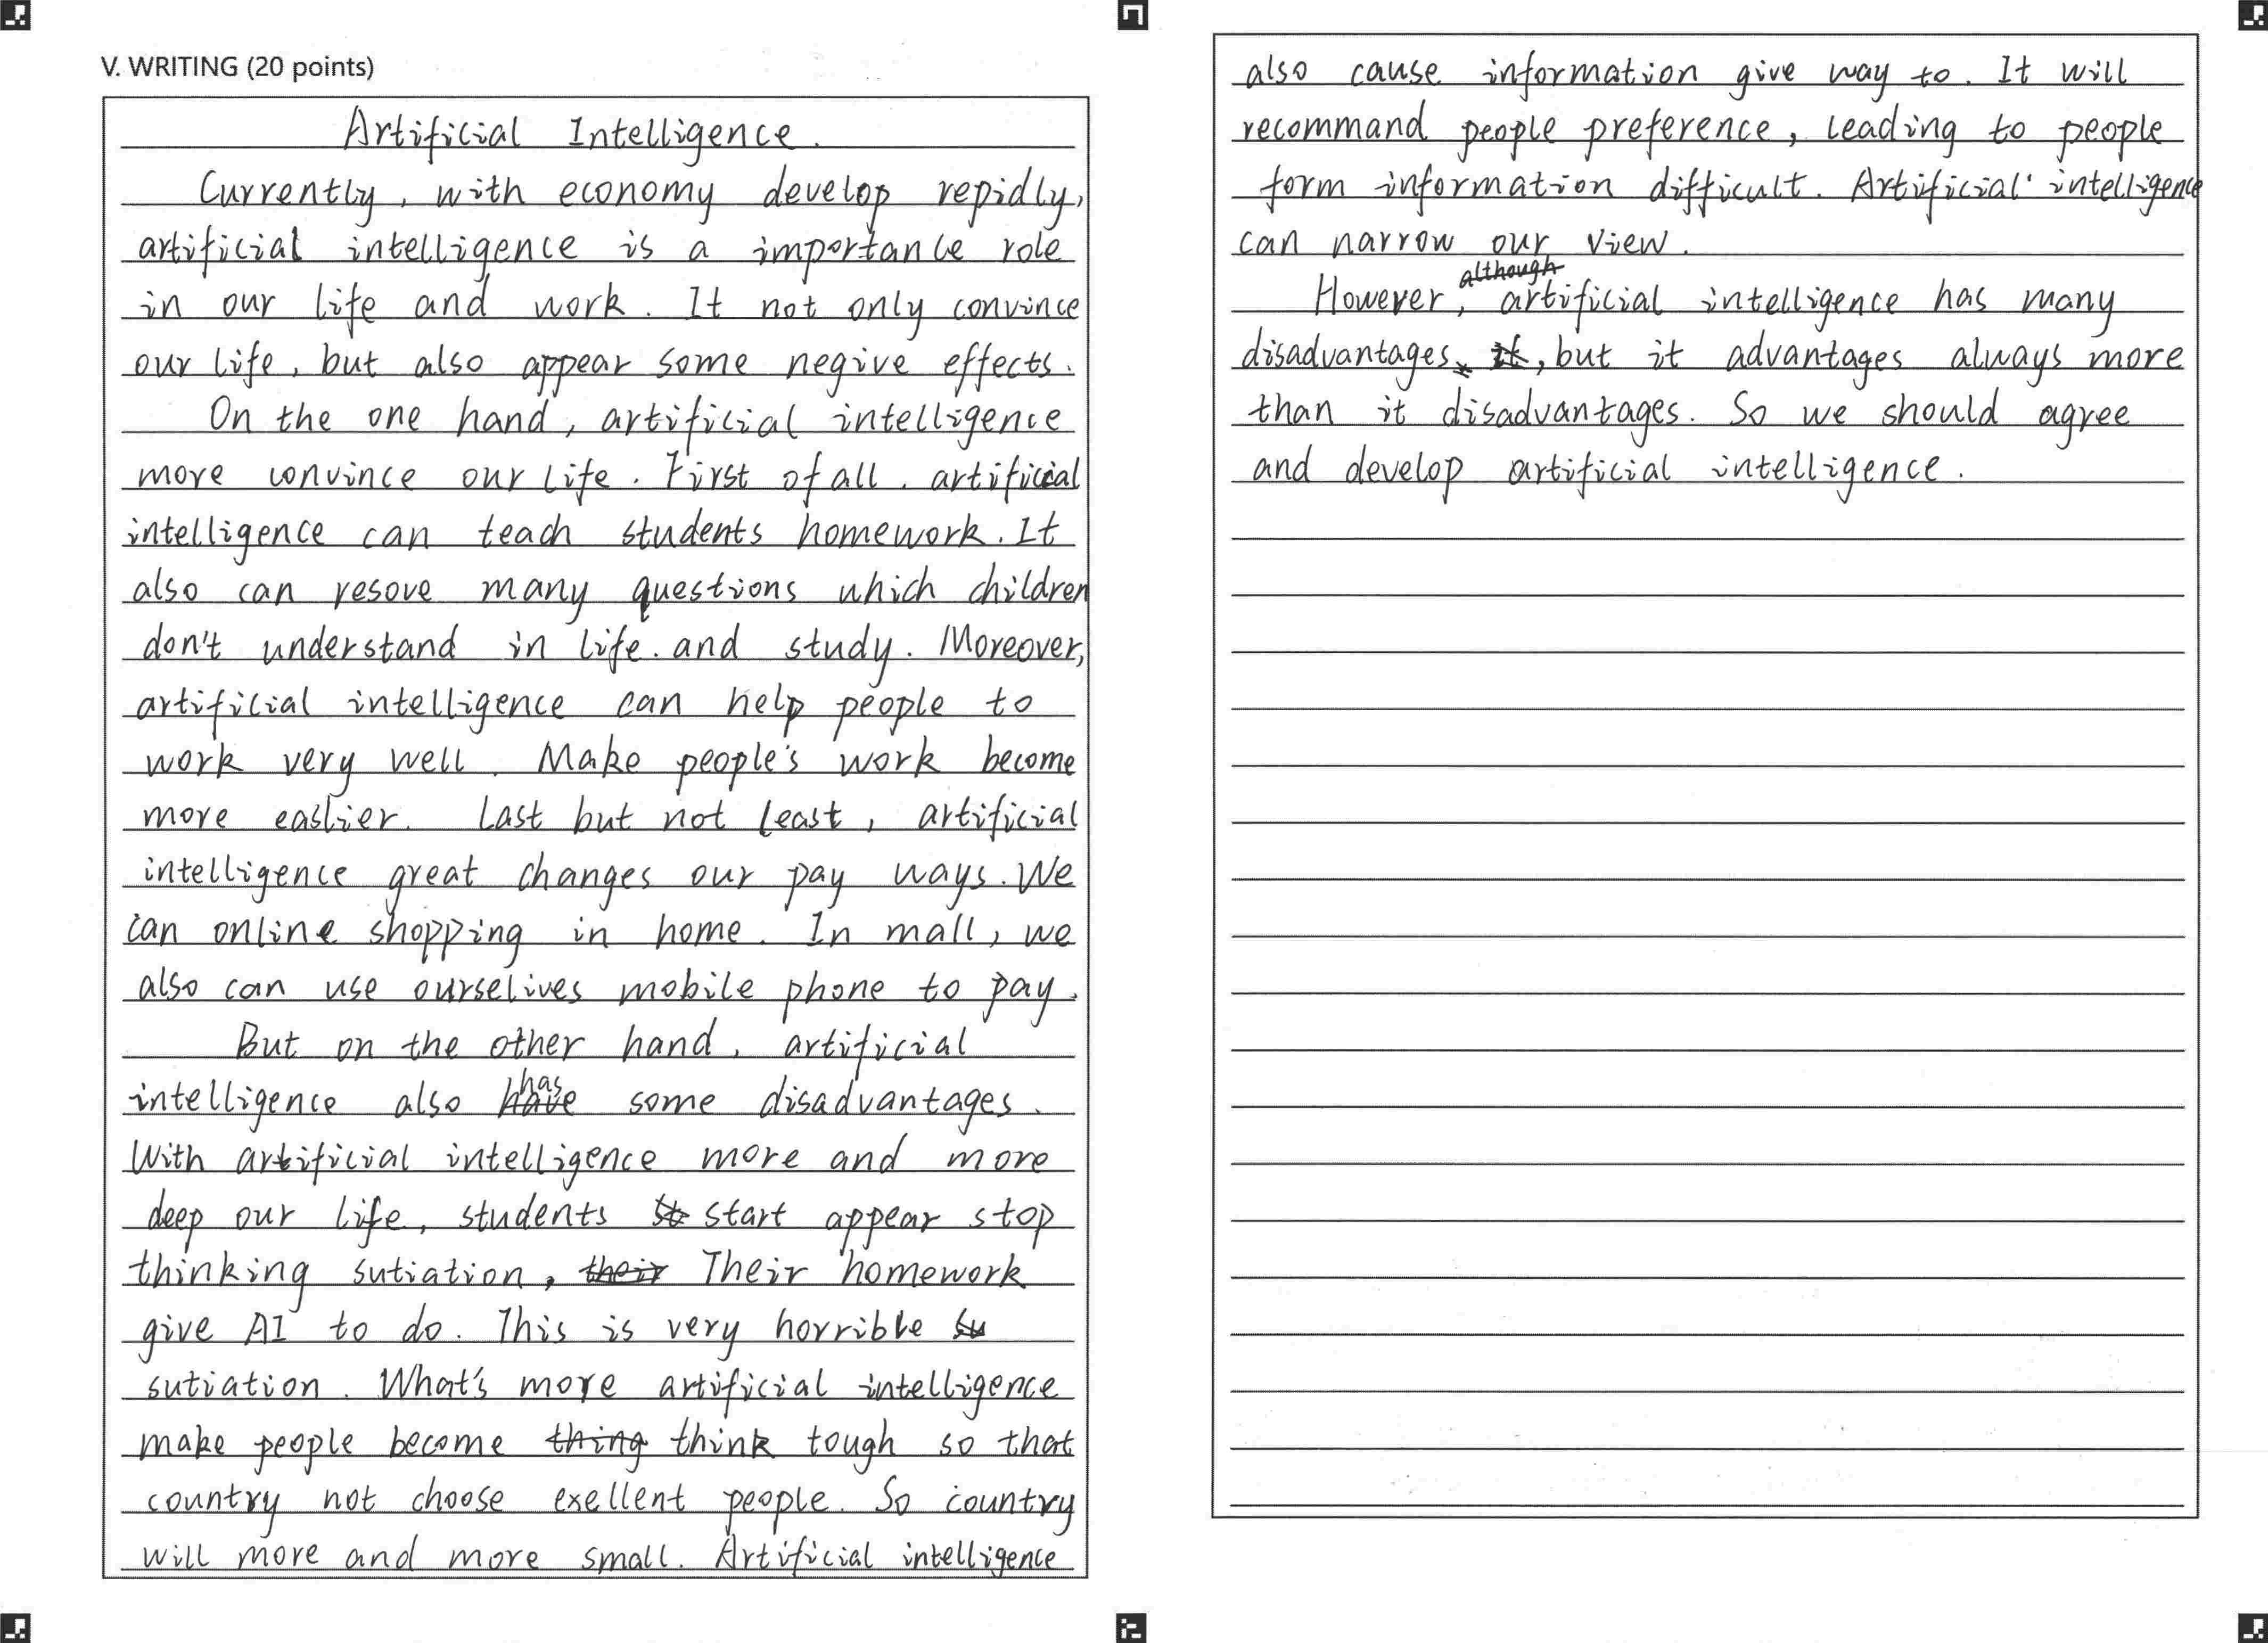 V. WRITING (20 points)
Artificial Intelligence.
Currently, with economy develop repidly,
artificial intelligence is a importance role
in our life and work. It not only convince
our life, but also appear some negive effects.
On the one hand, artificial intelligence
more convince our life. First of all, artificial
intelligence can teach students homework. It
also can resove many questions which children
don't understand in life. and study. Moreover,
artificial intelligence can help people to
work very well. Make people's work become
more easlier. Last but not least, artificial
intelligence great changes our pay ways. We
can online shopping in home. In mall, we
also can use ourselives mobile phone to pay.
But on the other hand, artificial
intelligence also has some disadvantages.
With artificial intelligence more and more
deep our life, students start appear stop
thinking sutiation, Their homework
give AI to do. This is very horrible
sutiation. What's more artificial intelligence
make people become think tough so that
country not choose exellent people. So country
will more and more small. Artificial intelligence
also cause information give way to. It will
recommand people preference, leading to people
form information difficult. Artificial intelligence
can narrow our view.
However, artificial intelligence has many
disadvantages, but it advantages always more
than it disadvantages. So we should agree
and develop artificial intelligence.